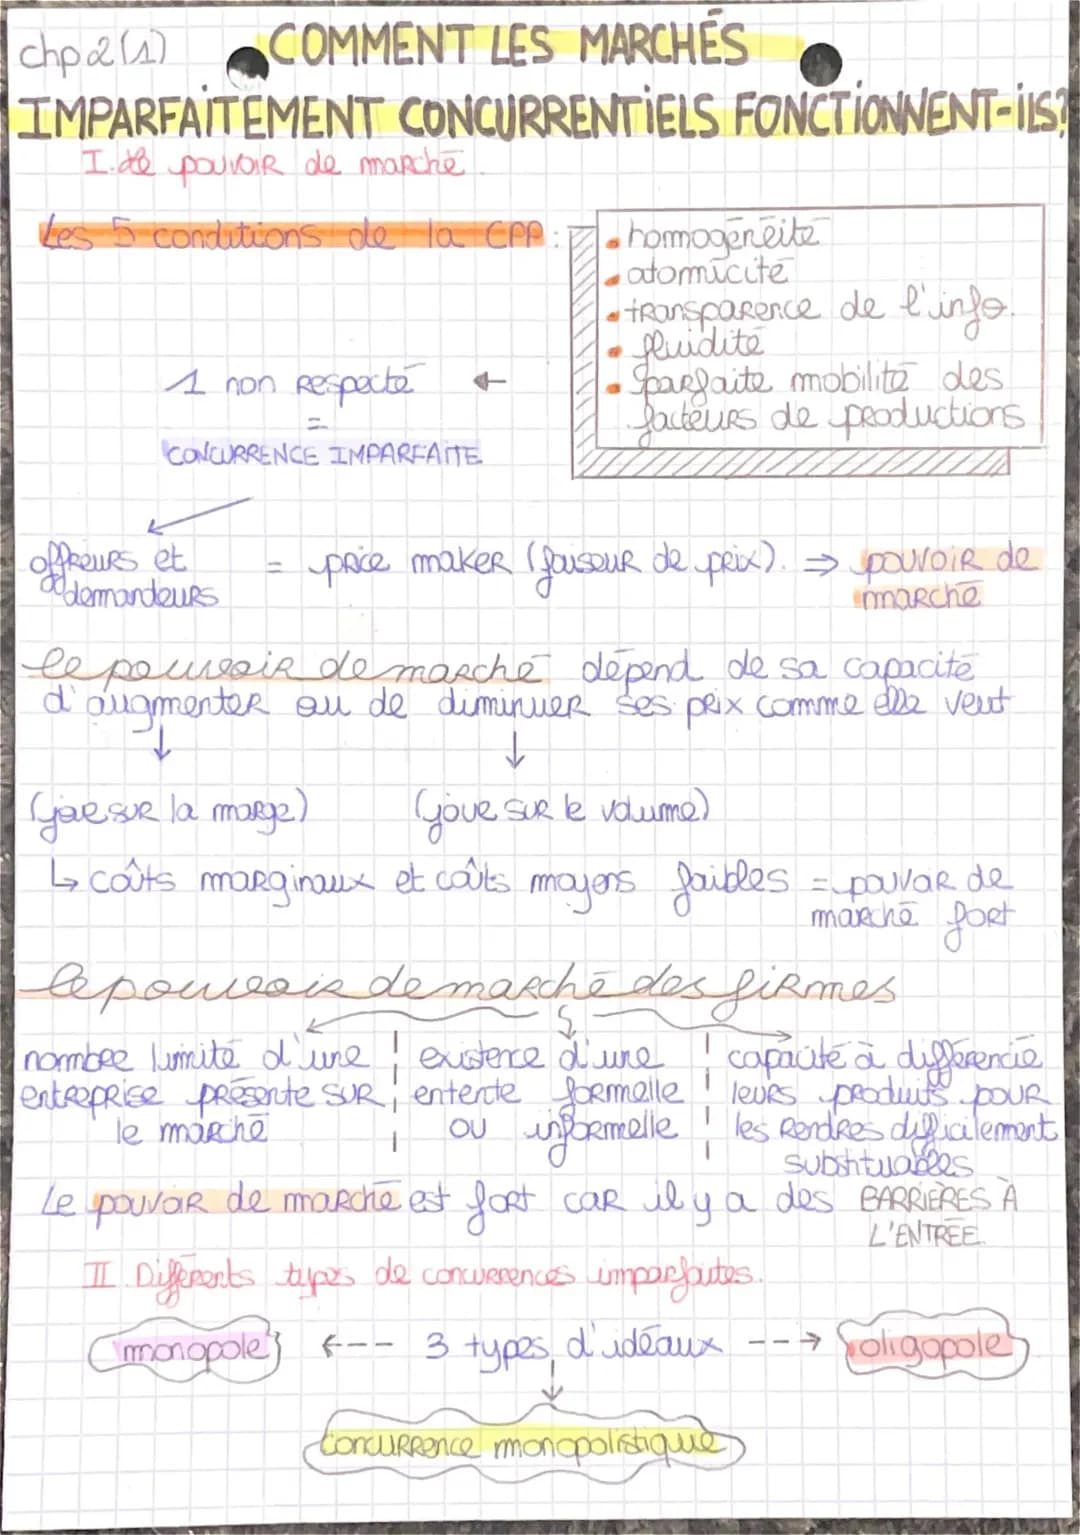 chp 2 (1)
COMMENT LES MARCHÉS
IMPARFAITEMENT CONCURRENTIELS FONCTIONNENT-ILS?
I. Le pouvoir de marché.
Les 5 conditions de la CPP :
• homogénéité
• atomicité
• transparence de l'info.
• fluidité
• parfaite mobilité des
facteurs de productions
1 non respecté ←
=
CONCURRENCE IMPARFAITE
offreurs et
demandeurs
= price maker (faiseur de prix). ⇒ pouvoir de
marché
le pouvoir de marché dépend de sa capacité
d'augmenter ou de diminuer ses prix comme elle veut
↓ ↓
(joue sur la marge) (joue sur le volume)
↳ coûts marginaux et coûts moyens faibles = pouvoir de
marché fort
le pouvoir de marché des firmes
nombre limité d'une
entreprise présente sur
le marché
existence d'une
entente formelle
ou informelle
capacité à différencié
leurs produits pour
les rendres difficilement
substituables
Le pouvoir de marché est fort car il y a des BARRIÈRES À
L'ENTRÉE.
II. Différents types de concurrences imparfaites.
monopole ←--- 3 types d'idéaux ---→ oligopole
↓
concurrence monopolistique